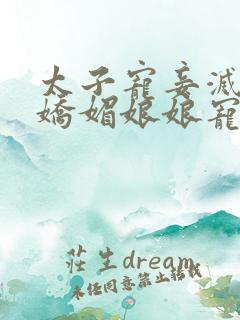 太子寵妾滅
嬌媚娘娘寵
莊生dream
未经同意禁止转载